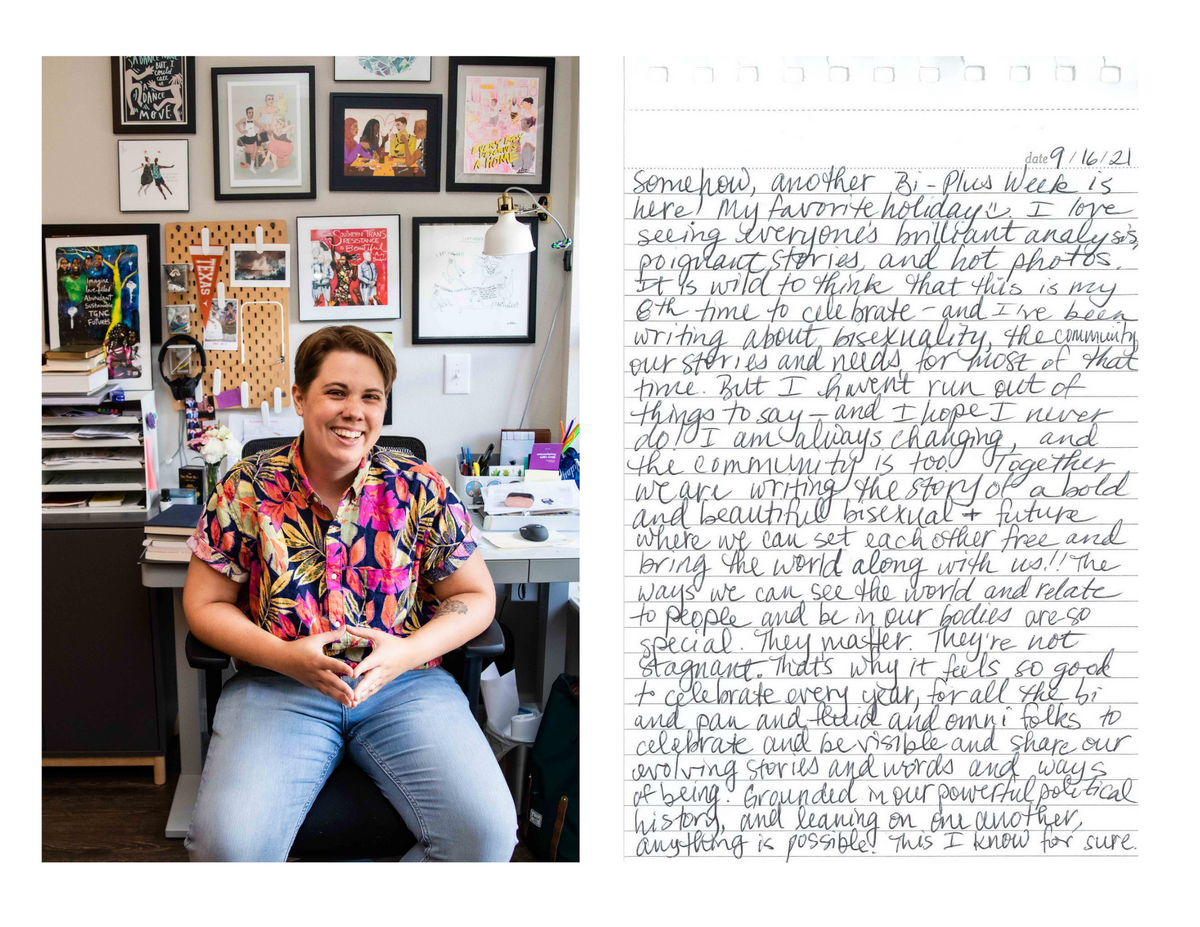 SA DANCE MOVE
BUT, I
could
call it
A
DANCE
A
MOVE
EVERY BODY
DESERVES
A HOME
SOUTHERN TRANS
RESISTANCE
is Beautiful
TEXAS
Imagine
love-filled
Abundant
Sustainable
TGNC
Futures
date 9/16/21
Somehow, another Bi-Plus Week is
here, My favorite holiday. I love
seeing everyone's brilliant analysis,
poignant stories, and hot photos.
It is wild to think that this is my
8th time to celebrate - and I've been
writing about bisexuality, the community
our stories and needs for most of that
time. But I havent run out of
things to say - and I hope I never
do! I am always changing, and
the community is too. Together
we are writing the story of a bold
and beautiful bisexual + future
where we can set each other free and
bring the world along with us!! The
ways we can see the world and relate
to people and be in our bodies are so
special. They matter. They're not
stagnant. That's why it feels so good
to celebrate every year, for all the bi
and pan and fluid and omni folks to
celebrate and be visible and share our
evolving stories and words and ways
of being. Grounded in our powerful political
history, and leaning on one another,
anything is possible! This I know for sure.